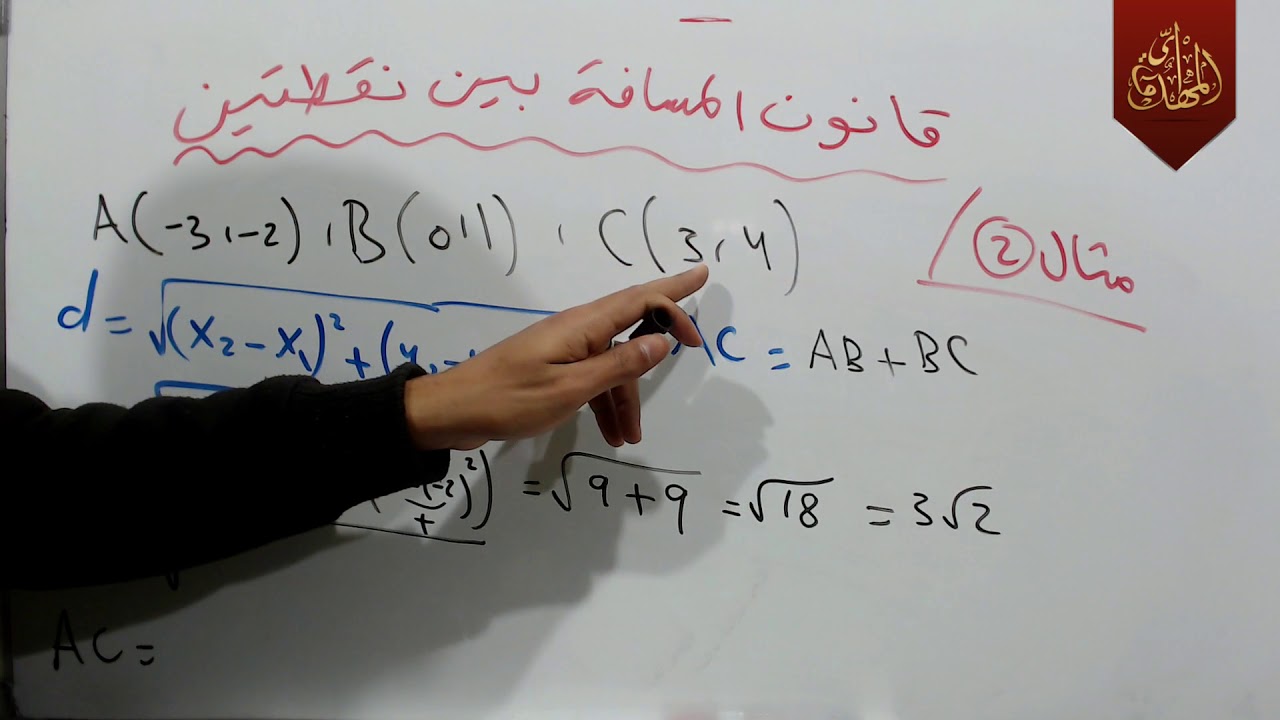 قانون المسافة بين نقطتين
مثال (2)
A(-3,-2) , B(0,1) , C(3,4)
d = √(x₂ - x₁)² + (y₂ -
AC = AB + BC
-2)² = √9+9 = √18 = 3√2
AC =